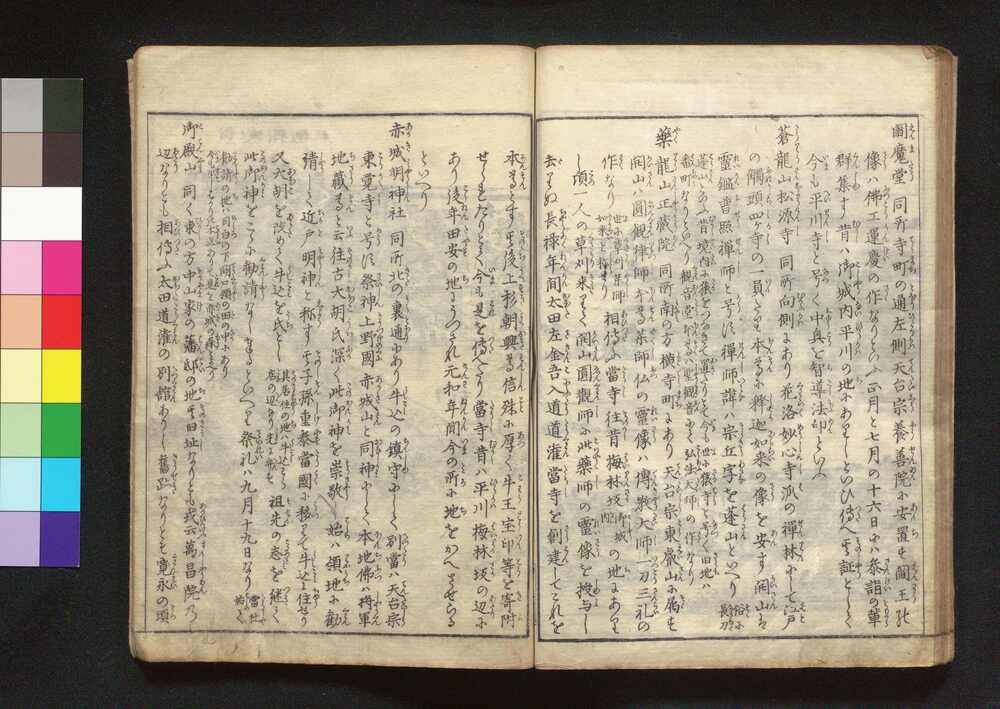 閻魔堂 同所寺町の通左側天台宗養善院に安置す閻王の
像ハ佛工運慶の作なりといふ正月と七月の十六日にハ参詣の輩
群集す昔ハ御城内平川の地にありしといひ傳へ其証として
今も平川寺と号く中興を智導法印といふ
蒼龍山松源寺 同所向側にあり花洛妙心寺派の禪林にして江戸
の觸頭四ヶ寺の一員たり本尊に釋迦如来の像を安す開山は
霊鑑普照禅師と号す禪師諱ハ宗丘字を蓬山といへり
昔境内に猿をつなきて置たりとて世に猿寺と号く旧地ハ
観音堂 聖観音 弘法大師の作なり
藥龍山正蔵院 同所南の方横寺町にあり天台宗東叡山に属す
開山ハ圓観律師本尊薬師仏の霊像ハ傳教大師一刀三礼の
作なり 相傳ふ當寺往昔梅林坂 御城内 の地にありし
し頃一人の草刈来りて開山圓観師に此藥師の霊像を授与し
去りぬ長禄年間太田左金吾入道道灌當寺を創建してこれを
本尊とす其後上杉朝興尊信殊に厚く牛王宝印等を寄附
せられたりとて今も是を傳へたり當寺昔ハ平川梅林坂の辺に
ありし後年田安の地にうつされ元和年間今の所に地をかへさせらる
といへり
赤城明神社 同所北の裏通にあり牛込の鎮守にして別當ハ天台宗
東覚寺と号す祭神上野國赤城山と同神にして本地佛ハ将軍
地藏尊と云往古大胡氏深く此御神を崇敬し始ハ領地に勧
請して近戸明神と称す其子孫重泰當國に移りて牛込に住せり
又大胡を改めて牛込を氏とし 其居住の地ハ牛込 祖先の志を継て
此御神をこゝに勧請なし奉るといへり祭礼ハ九月十九日なり 當社
勧請の地ハ目白の下関口領の田の中にあり
御殿山 同く東の方中山家の藩邸の地其旧址なりとも或云萬昌院の
辺なりとも相傳ふ太田道灌の別館ありし舊跡なりとも寛永の頃